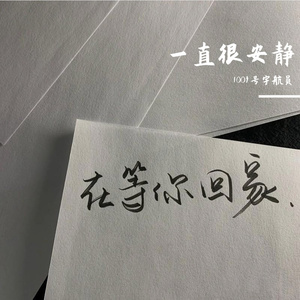 一直很安静
1001号宇航員
在等你回家.